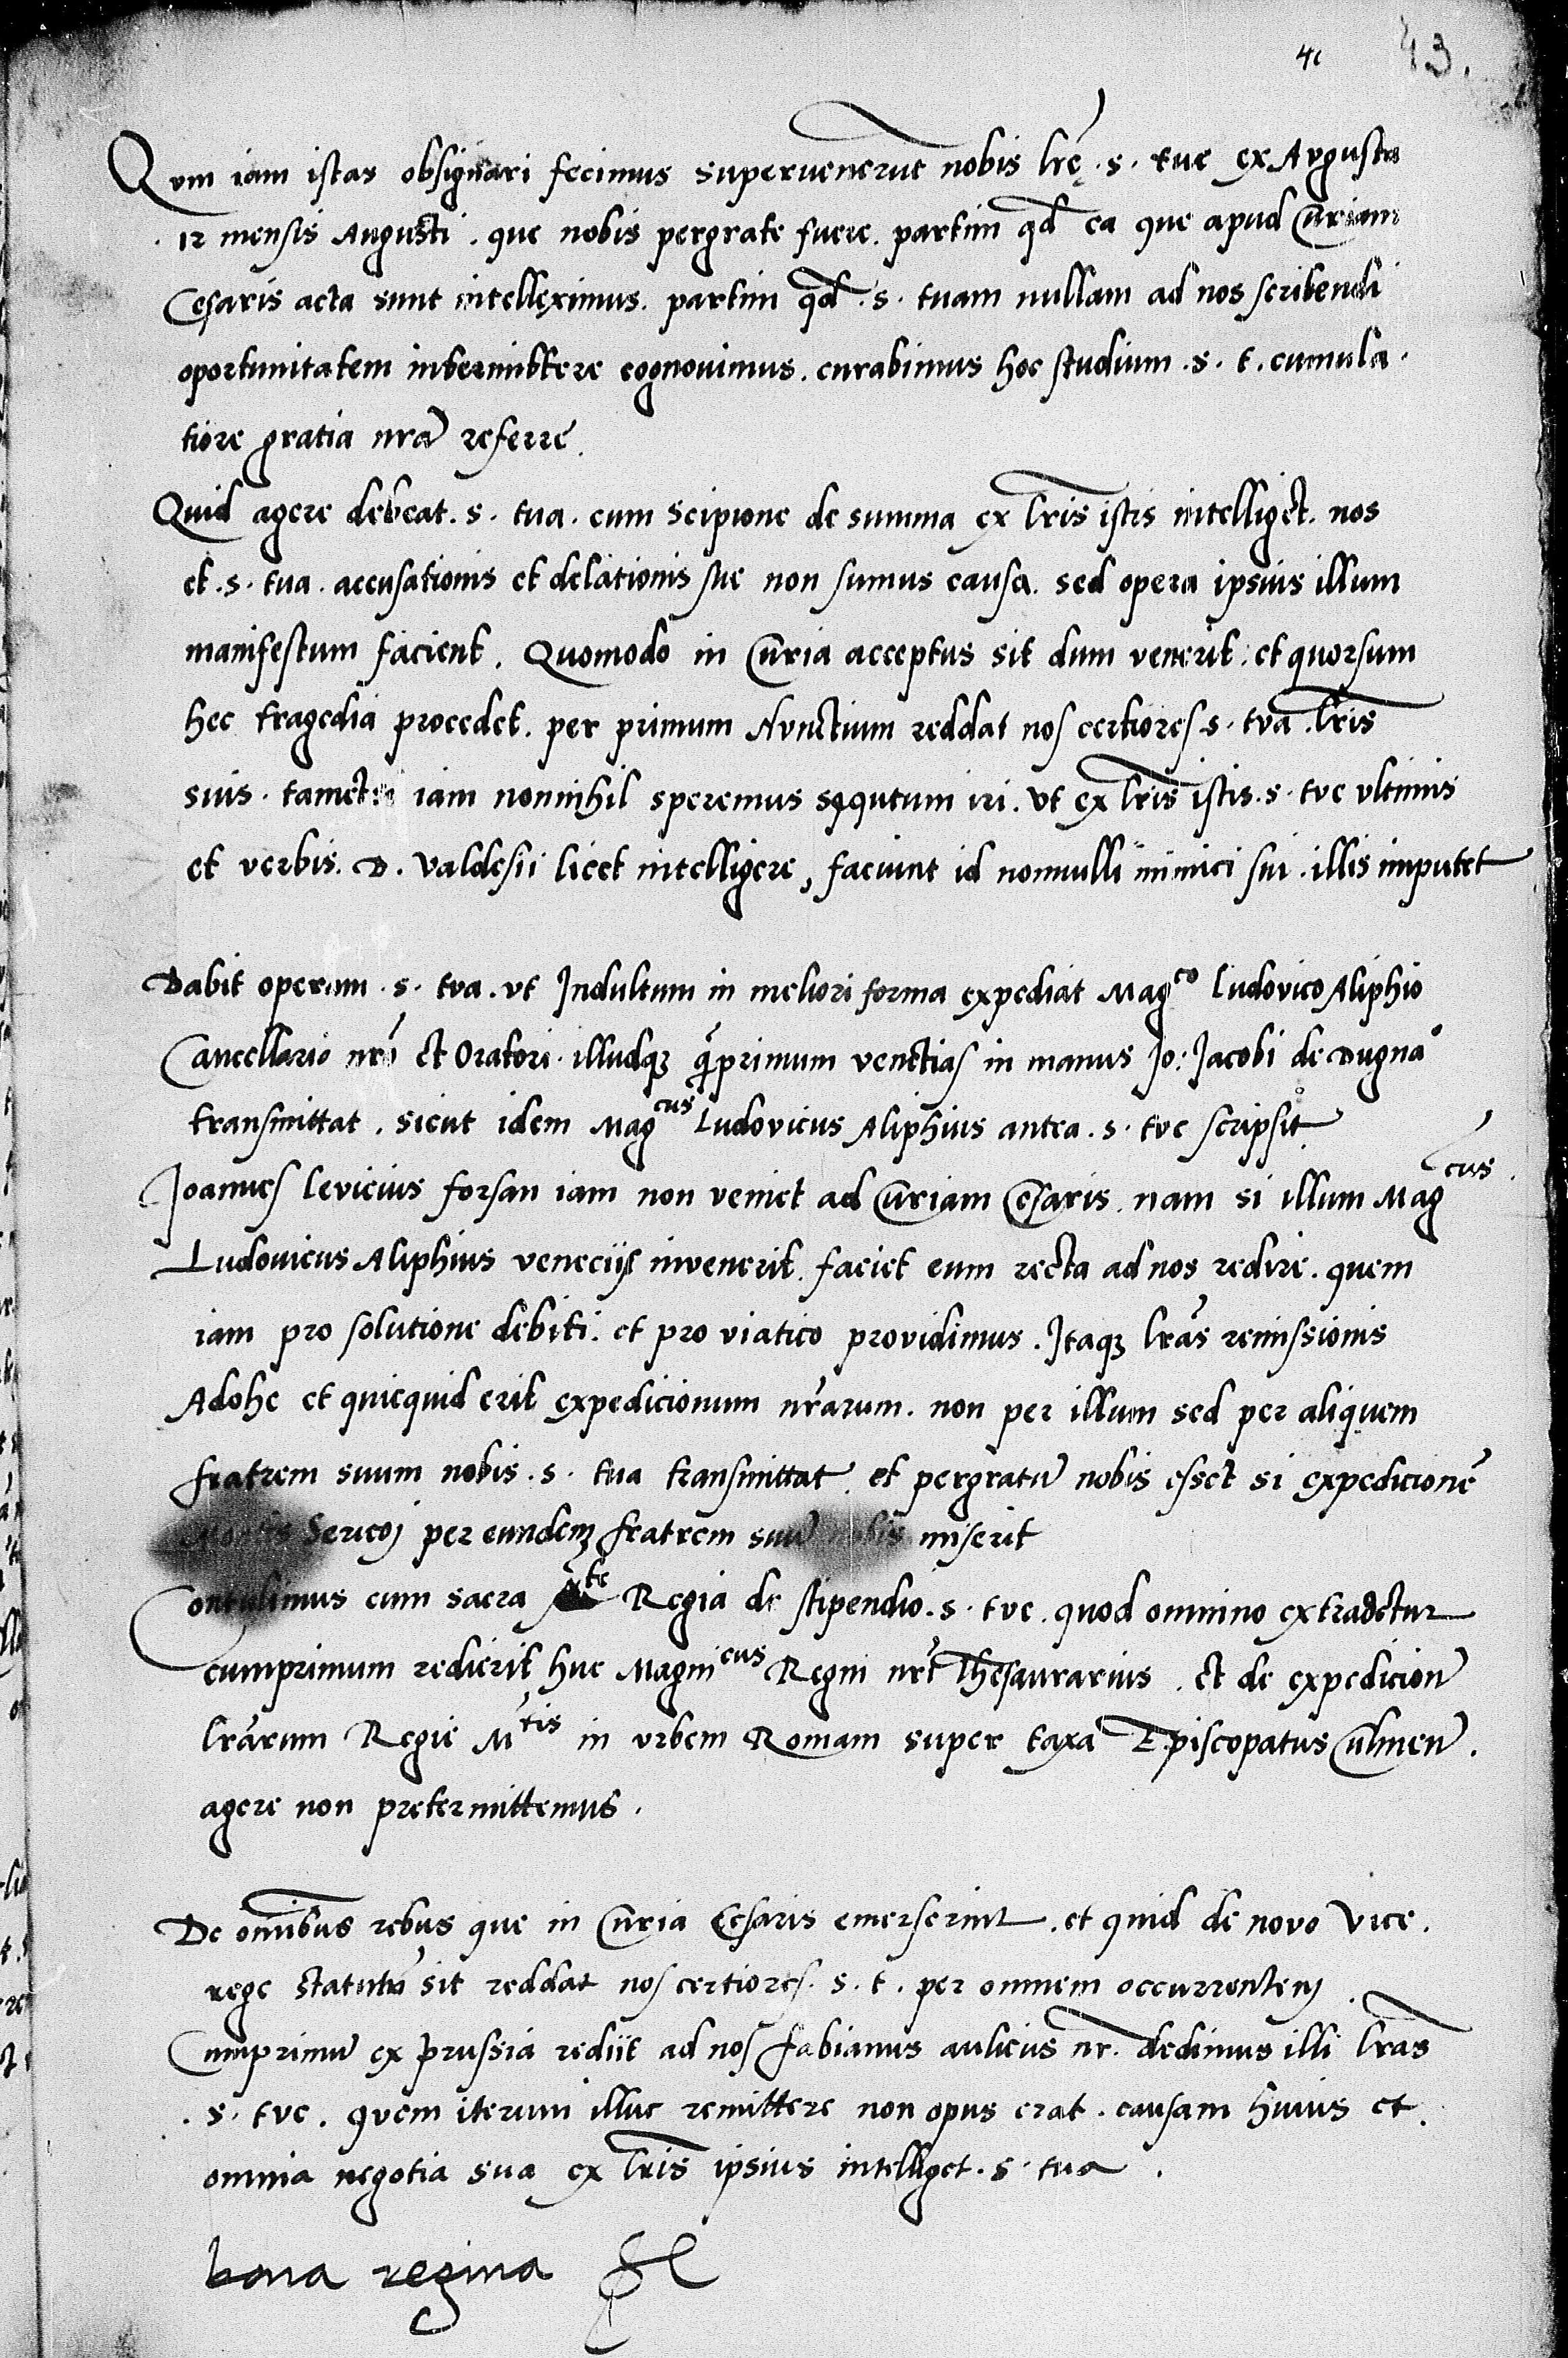 41 43.
Qum iam istas obsignari fecimus supervenerut nobis lrę. s. tue ex Augusta
. 12 mensis Augusti. que nobis pergrate fuere. partim qd ea que apud Curiam
Cęsaris acta sunt intellęximus. partim qd .s. tuam nullam ad nos scribendi
oportunitatem intermittere cognovimus. curabimus hoc studium .s. t. cumula.
tiore gratia nrā referre.
Quid agere debeat .s. tua. cum Scipione de summa ex lris istis intelliget. nos
et .s. tua. accusationis et delationis sue non sumus causa. sed opera ipsius illum
manifestum facient. Quomodo in Curia acceptus sit dum venerit. et quorsum
hec tragedia procedet. per primum Nunctium reddat nos certiores s. tua. lris
suis. tametsi iam nonnihil speremus sequutum iri. Ut ex lris istis .s. tue ultimis
et verbis. D. Valdesii licet intelligere, faciunt id nonnulli inimici sui. illis imputet
Dabit operam .s. tua. ut Indultum in meliori forma expediat Magco Ludovico Aliphio
Cancellario nrō et Oratori. illudqz q̄primum venetias in manus Jo: Jacobi de Dugnāo
transmittat. sicut idem Magcus Ludovicus Aliphius antea .s. tue scripsit.
Joannes levicius forsan iam non veniet ad Curiam Cęsaris. nam si illum Magcus
Ludovicus Aliphius veneciis invenerit. faciet eum recta ad nos redire. quem
iam pro solutione debiti. et pro viatico providimus. Itaqz lrās remissionis
Adohe et quicquid erit expedicionum nrārum. non per illum sed per aliquem
fratrem suum nobis .s. tua transmittat. et pergratū nobis esset si expedicionē
Montis Sericoj per eundemz fratrem suū nobis miserit
Contulimus cum sacra Mte Regia de stipendio .s. tue. quod omnino extradetur
cumprimum redierit huc Magnicus Regni nrī Thesaurarius. et de expedicionē
lrārum Regie Mtis in urbem Romam super taxa Episcopatus Culmeñ.
agere non pretermittemus.
De omibus rebus que in Curia Cesaris emerserint. et quid de novo Vice.
rege statutū sit reddat nos certiores. s. t. per omnem occurrentem.
Cumprimū ex Prussia rediit ad nos fabianus aulicus nr. dedimus illi lras
. s. tue. quem iterum illuc remittere non opus erat. causam huius et.
omnia negotia sua ex lris ipsius intelliget .s. tua.
bona regina